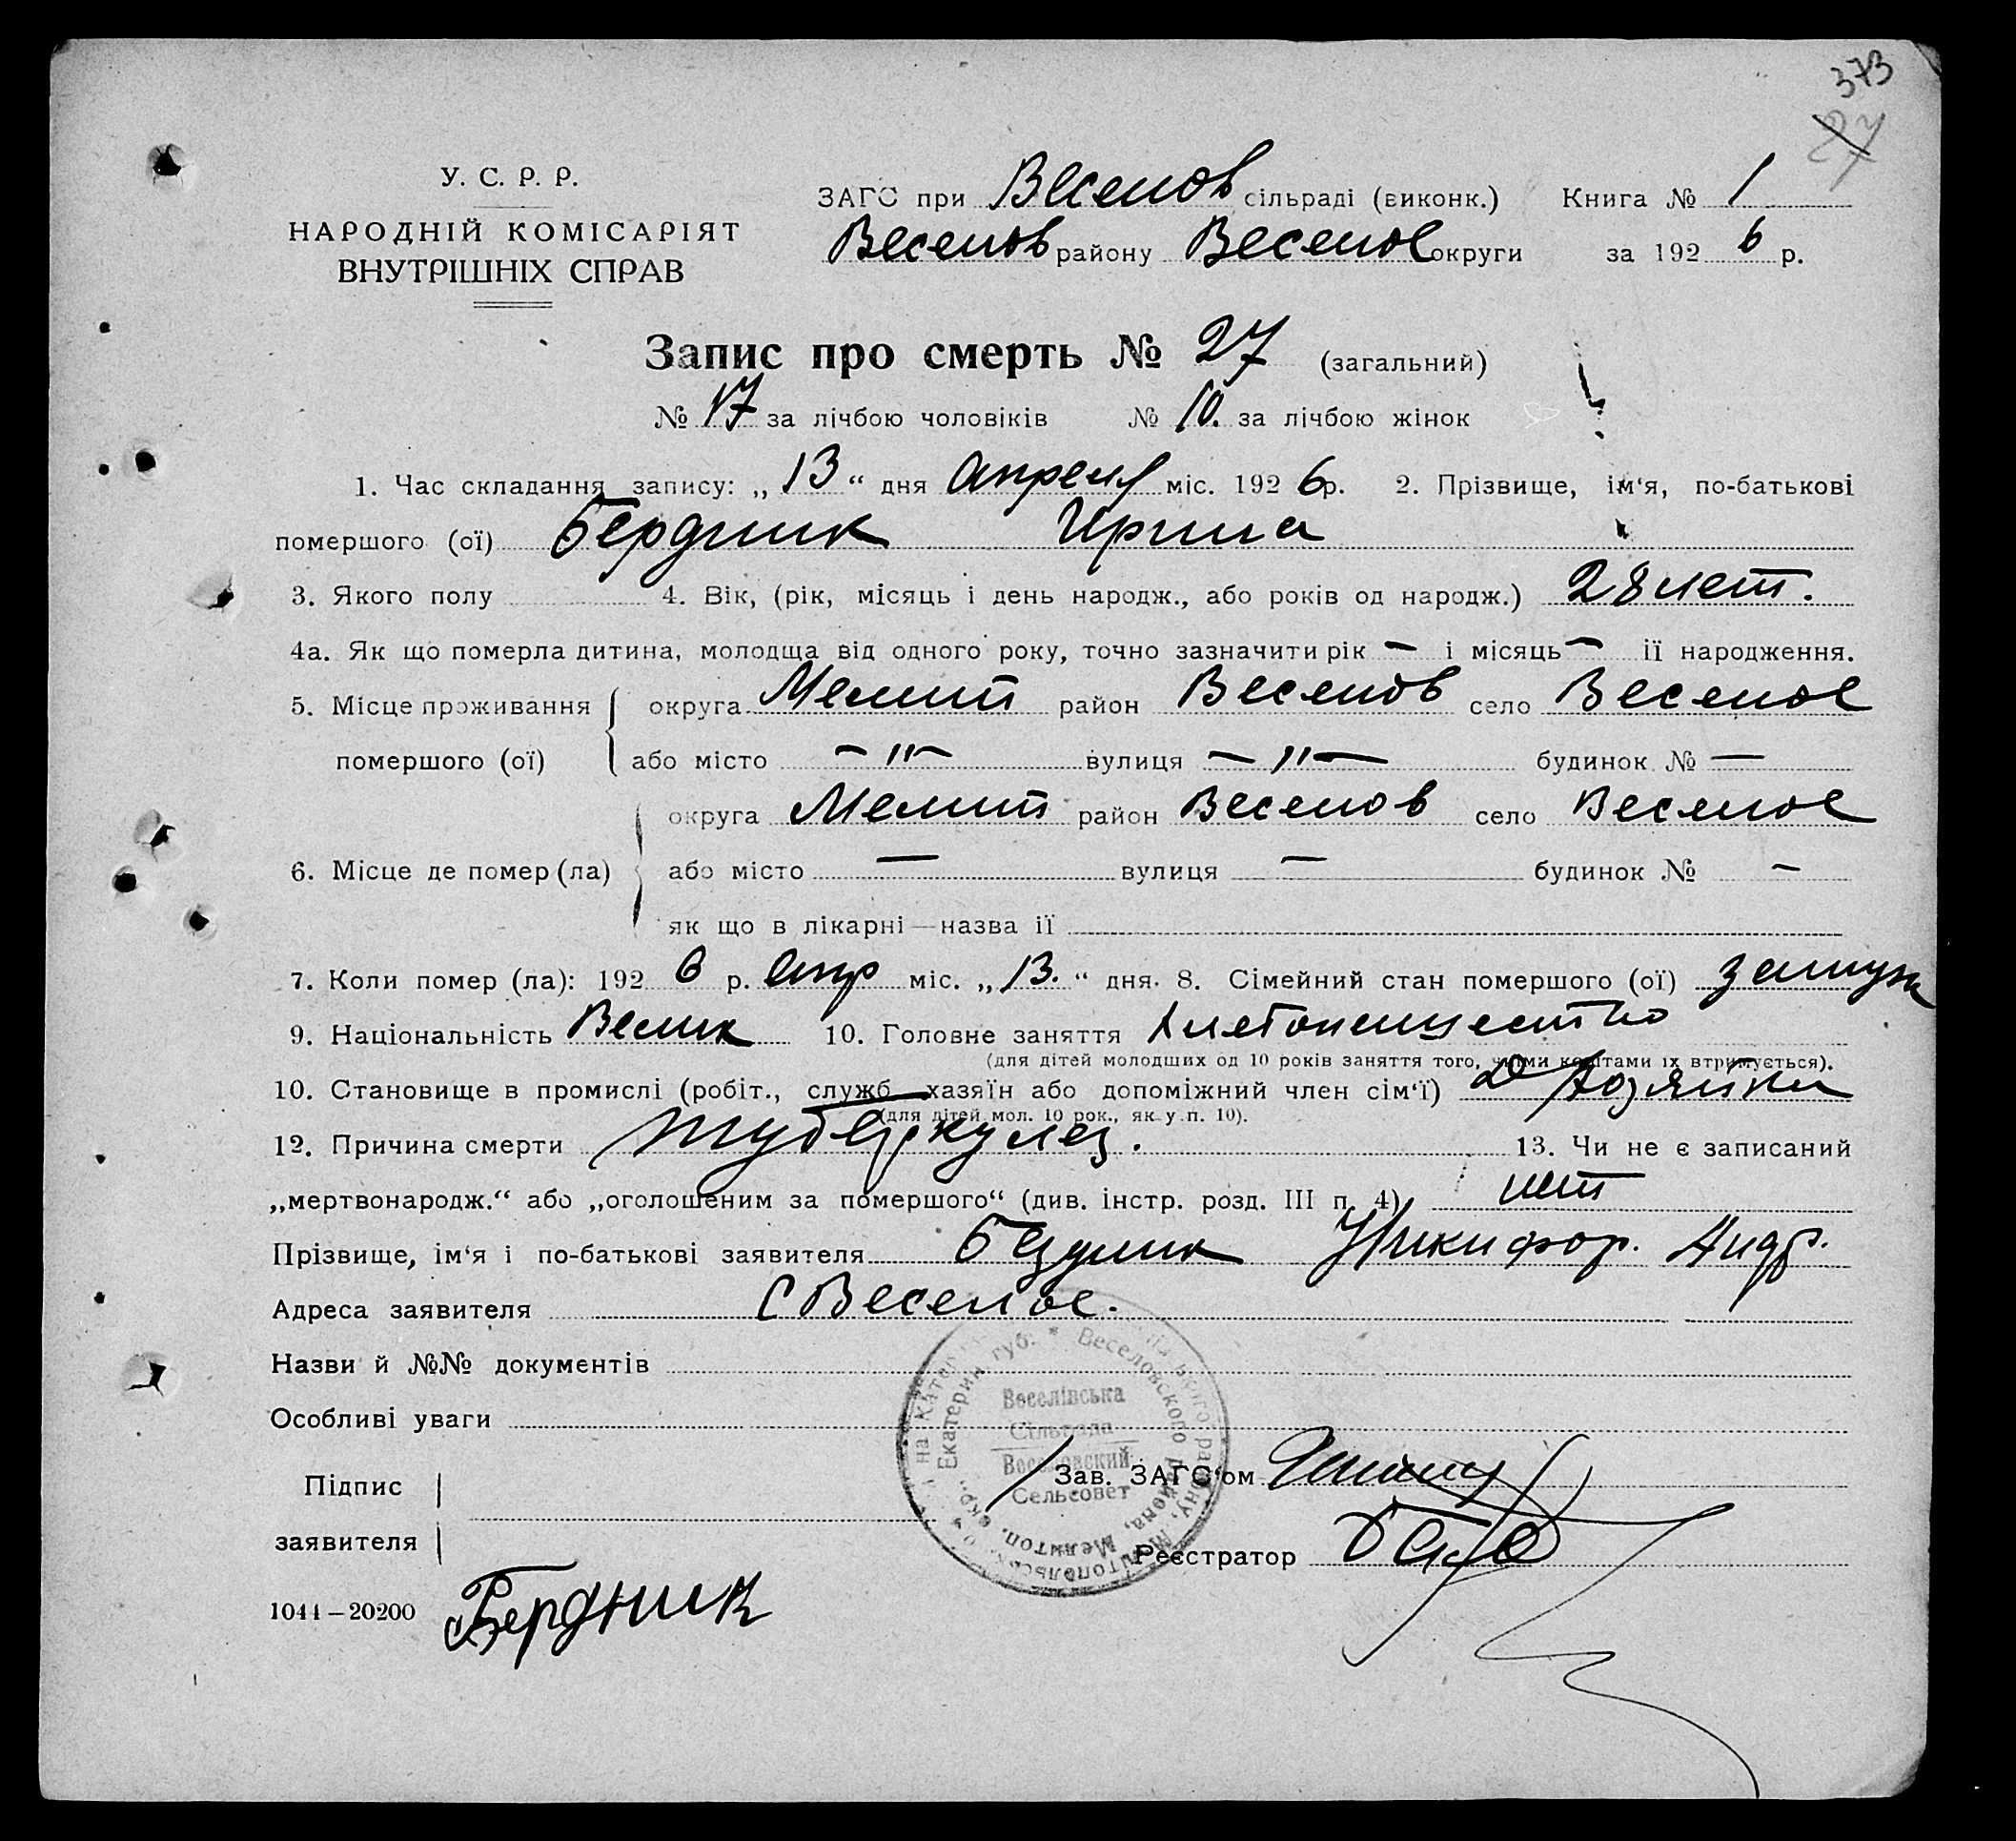 373
27
У. С. Р. Р.
НАРОДНІЙ КОМІСАРІЯТ
ВНУТРІШНІХ СПРАВ
ЗАГС при Веселов сільраді (виконк.) Книга № 1
Веселов району Веселое округи за 192 6 р.
Запис про смерть № 27 (загальний)
№ 17 за лічбою чоловіків № 10. за лічбою жінок
1. Час складання запису: „ 13 “ дня апреля міс. 192 6 р. 2. Прізвище, ім‘я, по-батькові
помершого (ої) Бердник Ирина
3. Якого полу 4. Вік, (рік, місяць і день народж., або років од народж.) 28 лет.
4а. Як що померла дитина, молодща від одного року, точно зазначити рік — і місяць — її народження.
5. Місце проживання округа Мелит район Веселов село Веселое
помершого (ої) або місто —"— вулиця —"— будинок № —
округа Мелит район Веселов село Веселое
6. Місце де помер (ла) або місто — вулиця — будинок № —
як що в лікарні — назва її
7. Коли помер (ла): 192 6 р. апр міс. „ 13. “ дня. 8. Сімейний стан помершого (ої) замуж
9. Національність Велик 10. Головне заняття Хлебопашество
(для дітей молодших од 10 років заняття того, чиїми коштами їх втримується).
10. Становище в промислі (робіт., служб. хазяїн або допоміжний член сім‘ї) Хозяйка
(для дітей мол. 10 рок., як у п. 10).
12. Причина смерти туберкулез. 13. Чи не є записаний
„мертвонародж.“ або „оголошеним за помершого“ (див. інстр. розд. III п. 4) нет
Прізвище, ім‘я і по-батькові заявителя Бердник Никифор. Андр.
Адреса заявителя С Веселое.
Назви й №№ документів
Особливі уваги
Веселівська
Сільрада
Веселовский
Сельсовет
Екатерин. губ. * Веселовского района, Мелитоп. окр.
Підпис
заявителя
Зав. ЗАГС‘ом
Реєстратор
1044—20200
Бердник